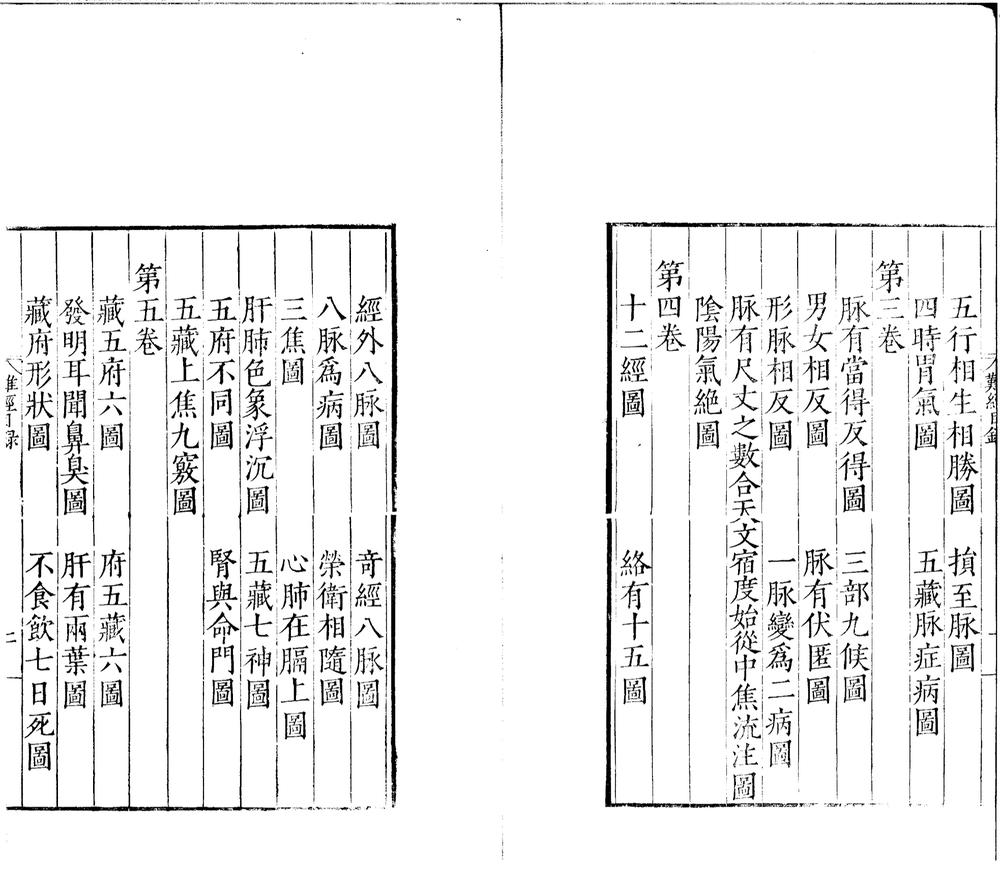 五行相生相勝圖　損至脉圖
四時胃氣圖　五藏脉症病圖
第三卷
脉有當得反得圖　三部九候圖
男女相反圖　脉有伏匿圖
形脉相反圖　一脉變爲二病圖
脉有尺丈之數合天文宿度始從中焦流注圖
陰陽氣絶圖
第四卷
十二經圖　絡有十五圖
經外八脉圖　奇經八脉圖
八脉爲病圖　榮衛相隨圖
三焦圖　心肺在膈上圖
肝肺色象浮沉圖　五藏七神圖
五府不同圖　腎與命門圖
五藏上焦九竅圖
第五卷
藏五府六圖　府五藏六圖
發明耳聞鼻臭圖　肝有兩葉圖
藏府形狀圖　不食飲七日死圖
難經目录